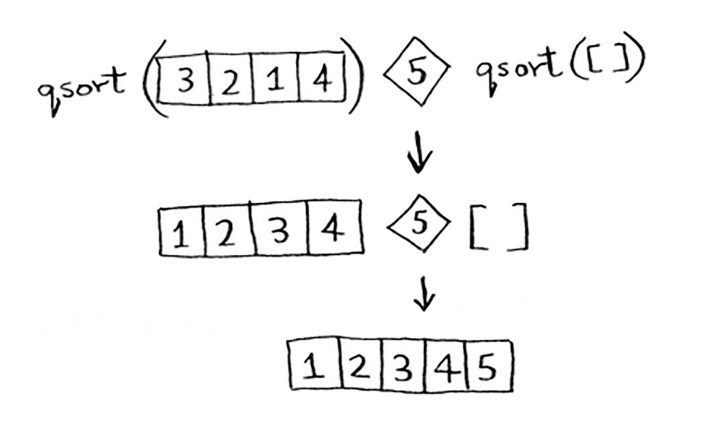 qsort ( 3 2 1 4 ) 5 qsort([ ])
1 2 3 4 5 [ ]
1 2 3 4 5